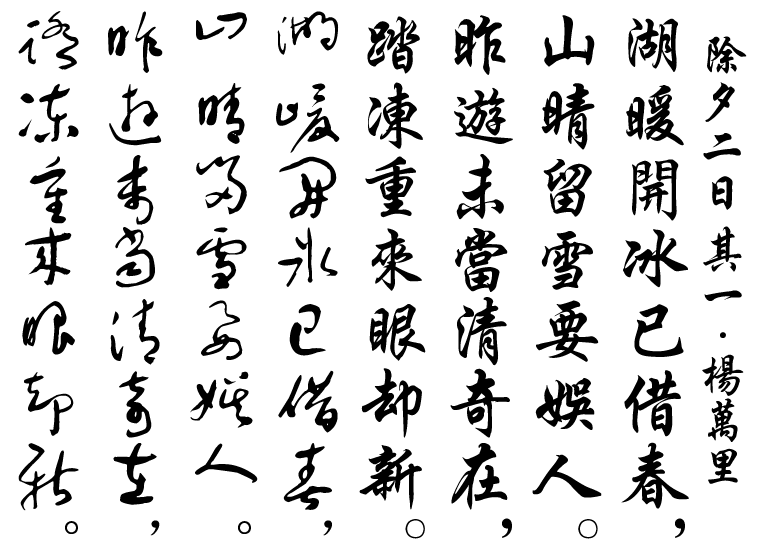 除夕二日其一·楊萬里
湖暖開冰已借春，
山晴留雪要娛人。
昨遊未當清奇在，
踏凍重來眼却新。
湖暖開冰已借春，
山晴留雪要娛人。
昨遊未當清奇在，
踏凍重來眼却新。